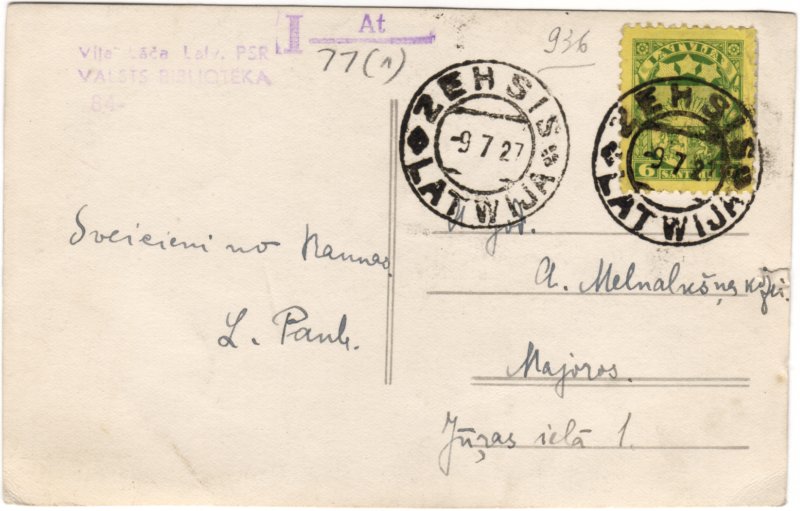 Viļa Lāča Latv. PSR
VALSTS BIBLIOTĒKA
84-
I At
77(1)
936
LATVIJA
6 SANTIMI 6
ZEHSIS
-9 7 27
LATWIJA
ZEHSIS
-9 7 27
LATWIJA
Sveicieni no Raunas.
L. Paul
A. Melnalkšņa kdzei.
Majoros.
Jūŗas ielā 1.